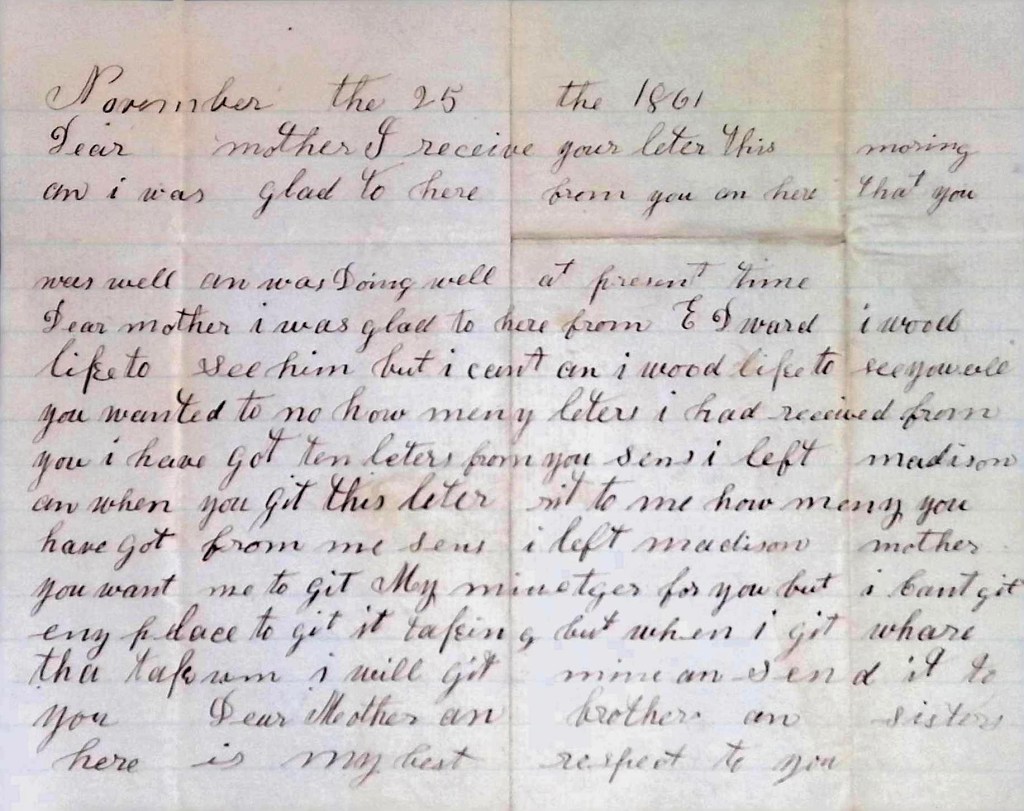 November the 25 the 1861
Dear mother I receive your leter this moring
an i was glad to here from you an here that you
was well an was Doing well at present time
Dear mother i was glad to here from E Dward i wood
like to see him but i cant an i wood like to see you all
you wanted to no how meny leters i had received from
you i have got ten leters from you sens i left madison
an when you git this leter rit to me how meny you
have got from me sens i left madison mother
you want me to git My minetger for you but i cant git
eny pelace to git it takeing but when i git whare
tha tak um i will git mine an send it to
you Dear Mother an brothers an sisters
here is my best respect to you